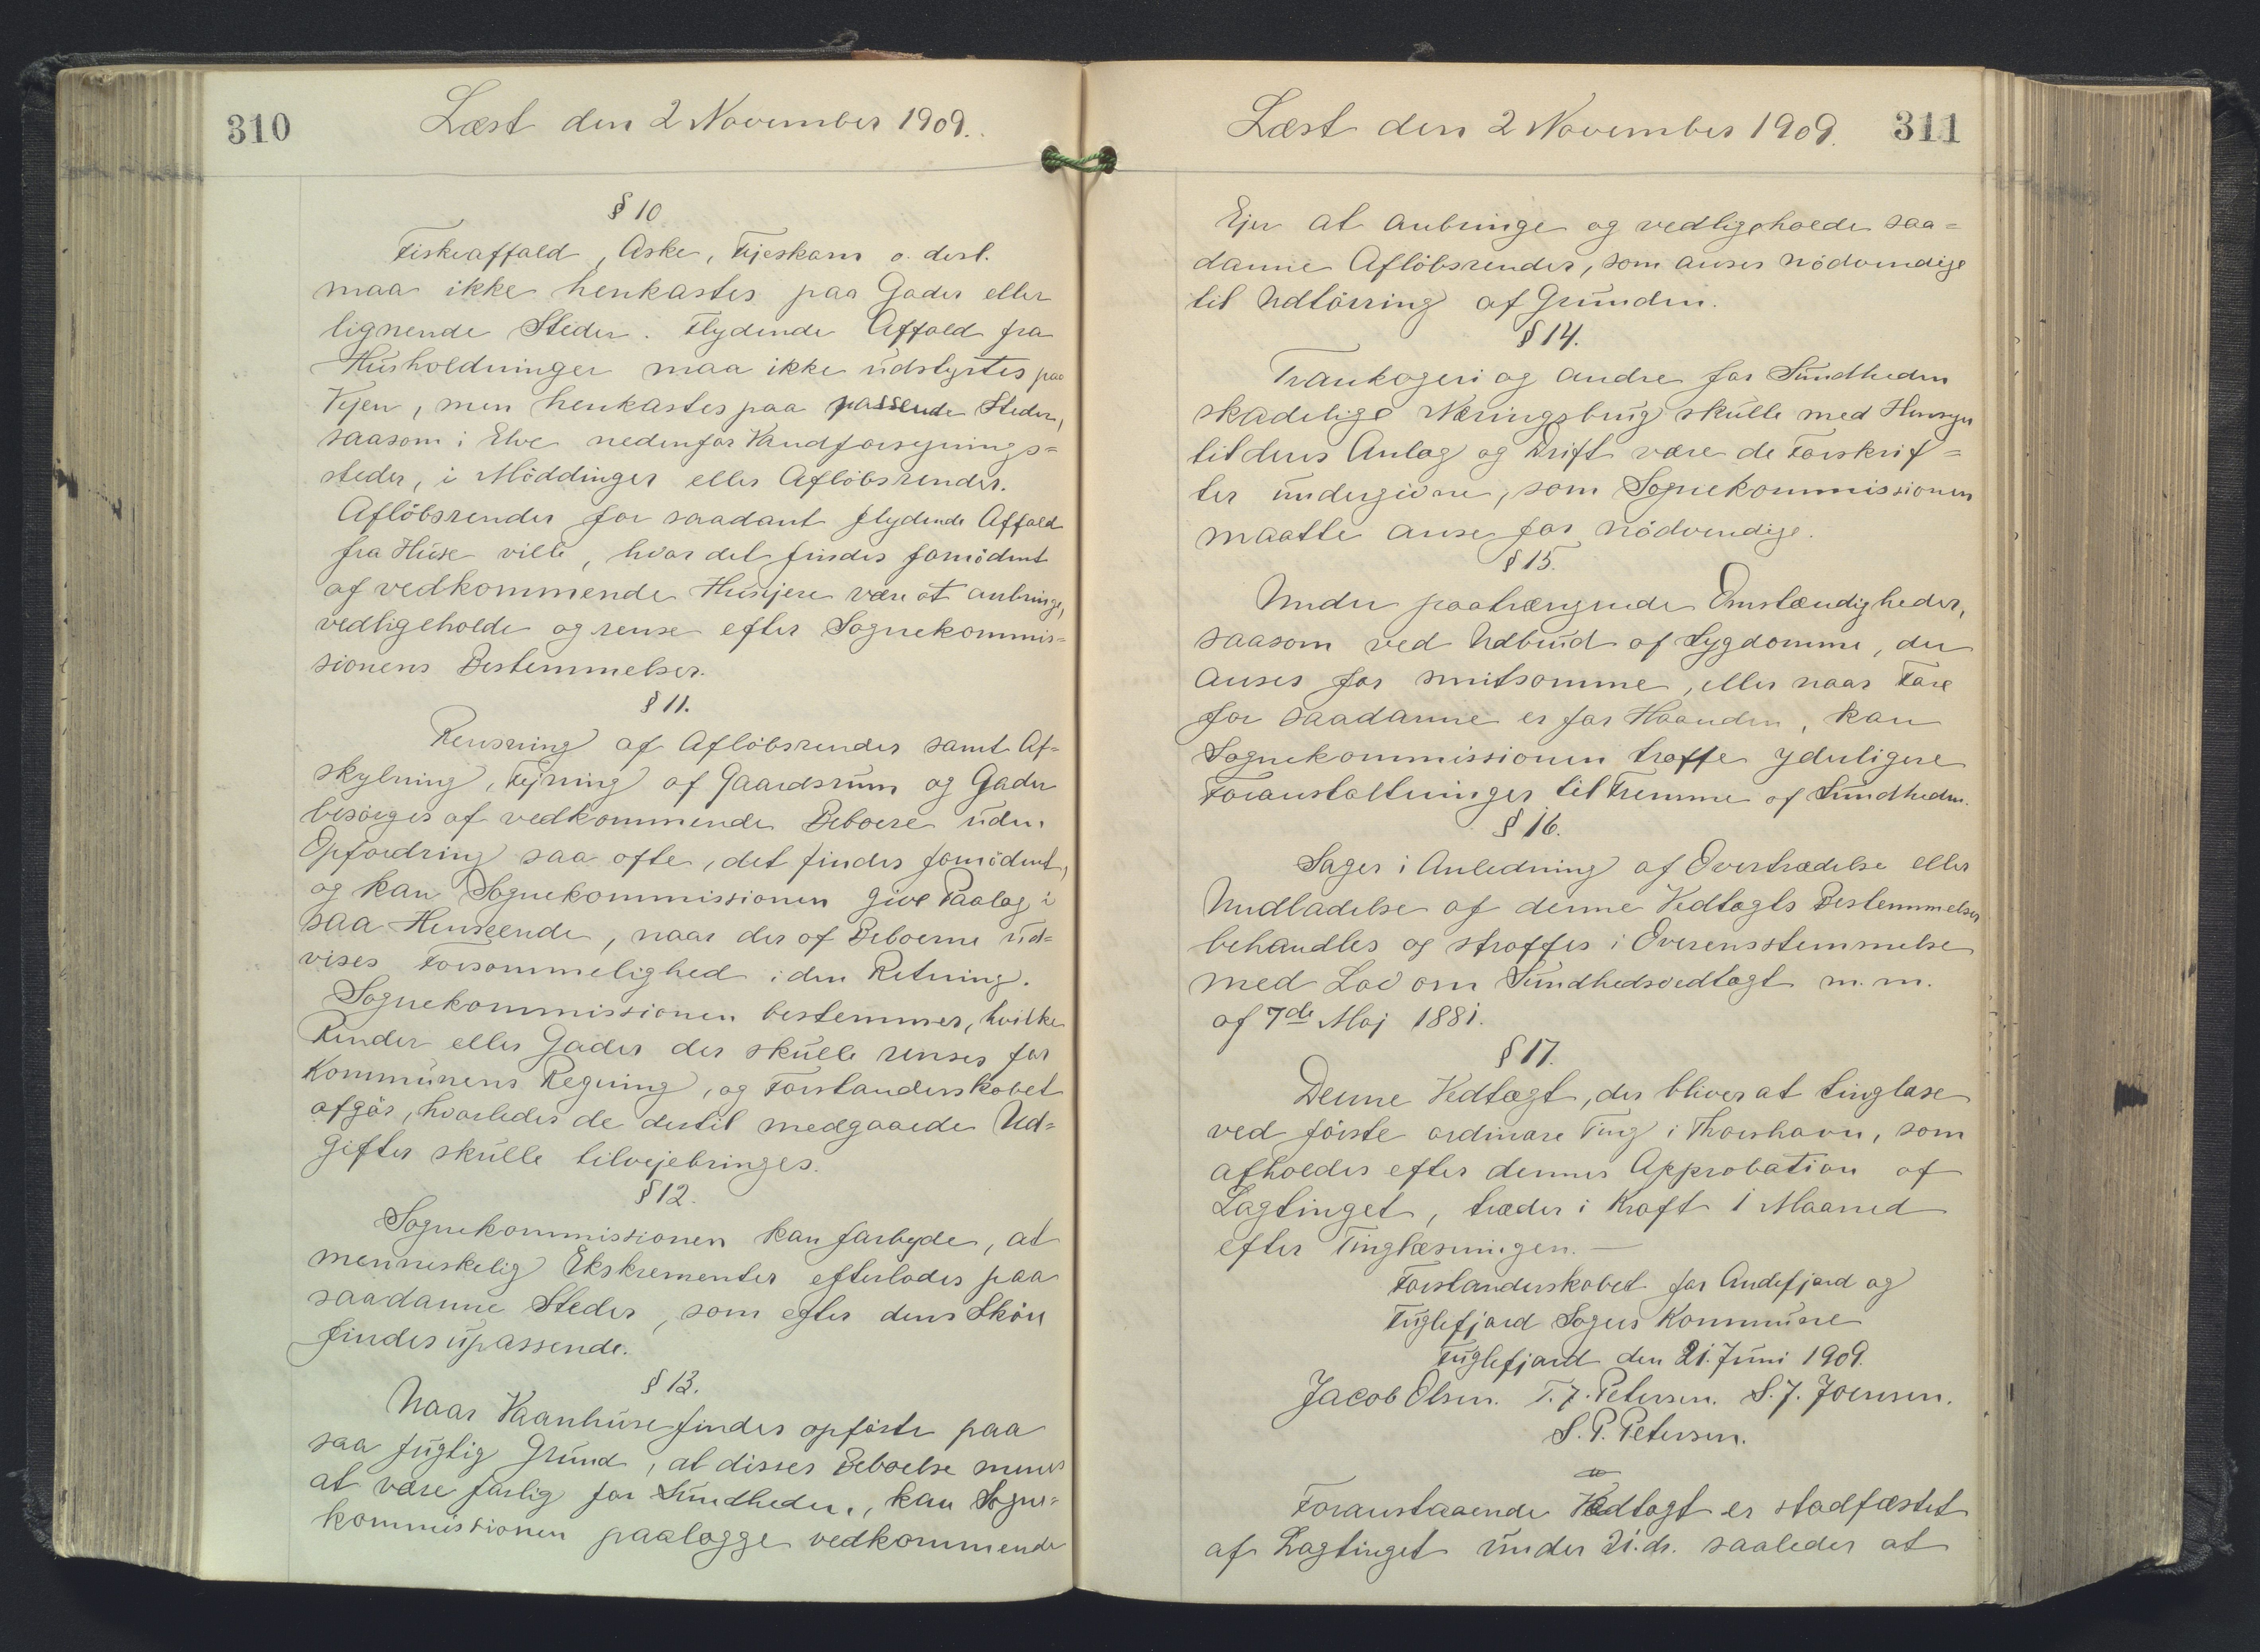 310
Læst den 2 November 1909.
§ 10
Fiskeaffald, Aske, Fejeskarn o. desl.
maa ikke henkastes paa Gader eller
lignende Steder. Flydende Affald fra
Husholdninger maa ikke udstyrtes paa
Vejen, men henkastes paa passende Steder,
saasom i Elve nedenfor Vandforsynings=
steder, i Möddinger eller Aflöbsrender.
Aflöbsrender for saadant flydende Affald
fra Huse ville, hvor det findes fornödent
af vedkommende Husejere være at anbringe,
vedligeholde og rense efter Sognekommis=
sionens Bestemmelser.
§ 11.
Rensning af Aflöbsrender samt Af=
skylning, Fejning af Gaardsrum og Gader
besörges af vedkommende Beboere uden
Opfordring saa ofte, det findes fornödent,
og kan Sognekommissionen give Paalæg i
saa Henseende, naar der af Beboerne ud=
vises Forsømmelighed i den Retning.
Sognekommissionen bestemmer, hvilke
Render eller Gader der skulle renses for
Kommunens Regning, og Forstanderskabet
afgör, hvorledes de dertil medgaaede Ud=
gifter skulle tilvejebringes.
§ 12.
Sognekommissionen kan forbyde, at
menneskelig Ekskrementer efterlades paa
saadanne Steder, som efter dens Skön
findes upassende.
§ 13.
Naar Vaanhuse findes opförte paa
saa fugtig Grund, at disses Beboelse menes
at være farlig for Sundheden, kan Sogne=
kommissionen paalægge vedkommende
Læst den 2 November 1909.
311
Ejer at anbringe og vedligeholde saa=
danne Aflöbsrender, som anses nödvendige
til Udtörring af Grunden.
§ 14.
Trankogeri og andre for Sundheden
skadelige Næringsbrug skulle med Hensyn
til deres Anlæg og Drift være de Forskrif=
ter undergivne, som Sognekommissionen
maatte anse for nödvendige.
§ 15.
Under paatrængende Omstændigheder,
saasom ved Udbrud af Sygdomme, der
anses for smitsomme, eller naar Fare
for saadanne er for Haanden, kan
Sognekommissionen træffe yderligere
Foranstaltninger til Fremme af Sundheden.
§ 16.
Sager i Anledning af Overtrædelse eller
Undladelse af denne Vedtægts Bestemmelser
behandles og straffes i Overensstemmelse
med Lov om Sundhedsvedtægt m. m.
af 7de Maj 1881.
§ 17.
Denne Vedtægt, der bliver at tinglæse
ved förste ordinære Ting i Thorshavn, som
afholdes efter dennes Approbation af
Lagtinget, træder i Kraft 1 Maaned
efter Tinglæsningen. —
Forstanderskabet for Andefjord og
Fuglefjord Sogns Kommune
Fuglefjord den 21. Juni 1909.
Jacob Olsen. T. J. Petersen. S. J. Joensen.
S. P. Petersen.
Foranstaaende Vedtægt er stadfæstet
af Lagtinget under 21. ds. saaledes at